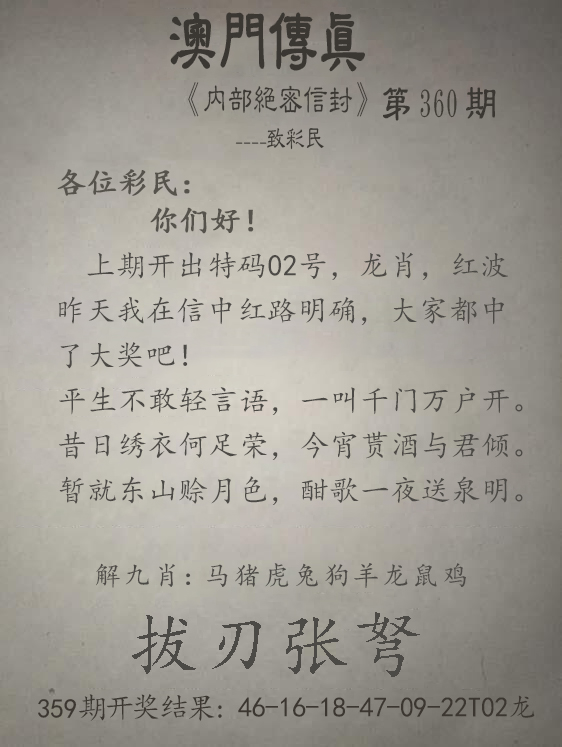 澳門傳真
《内部絕密信封》第360期
----致彩民
各位彩民：
你们好！
上期开出特码02号，龙肖，红波
昨天我在信中红路明确，大家都中
了大奖吧！
平生不敢轻言语，一叫千门万户开。
昔日绣衣何足荣，今宵贳酒与君倾。
暂就东山赊月色，酣歌一夜送泉明。
解九肖：马猪虎兔狗羊龙鼠鸡
拔刃张弩
359期开奖结果：46-16-18-47-09-22T02龙